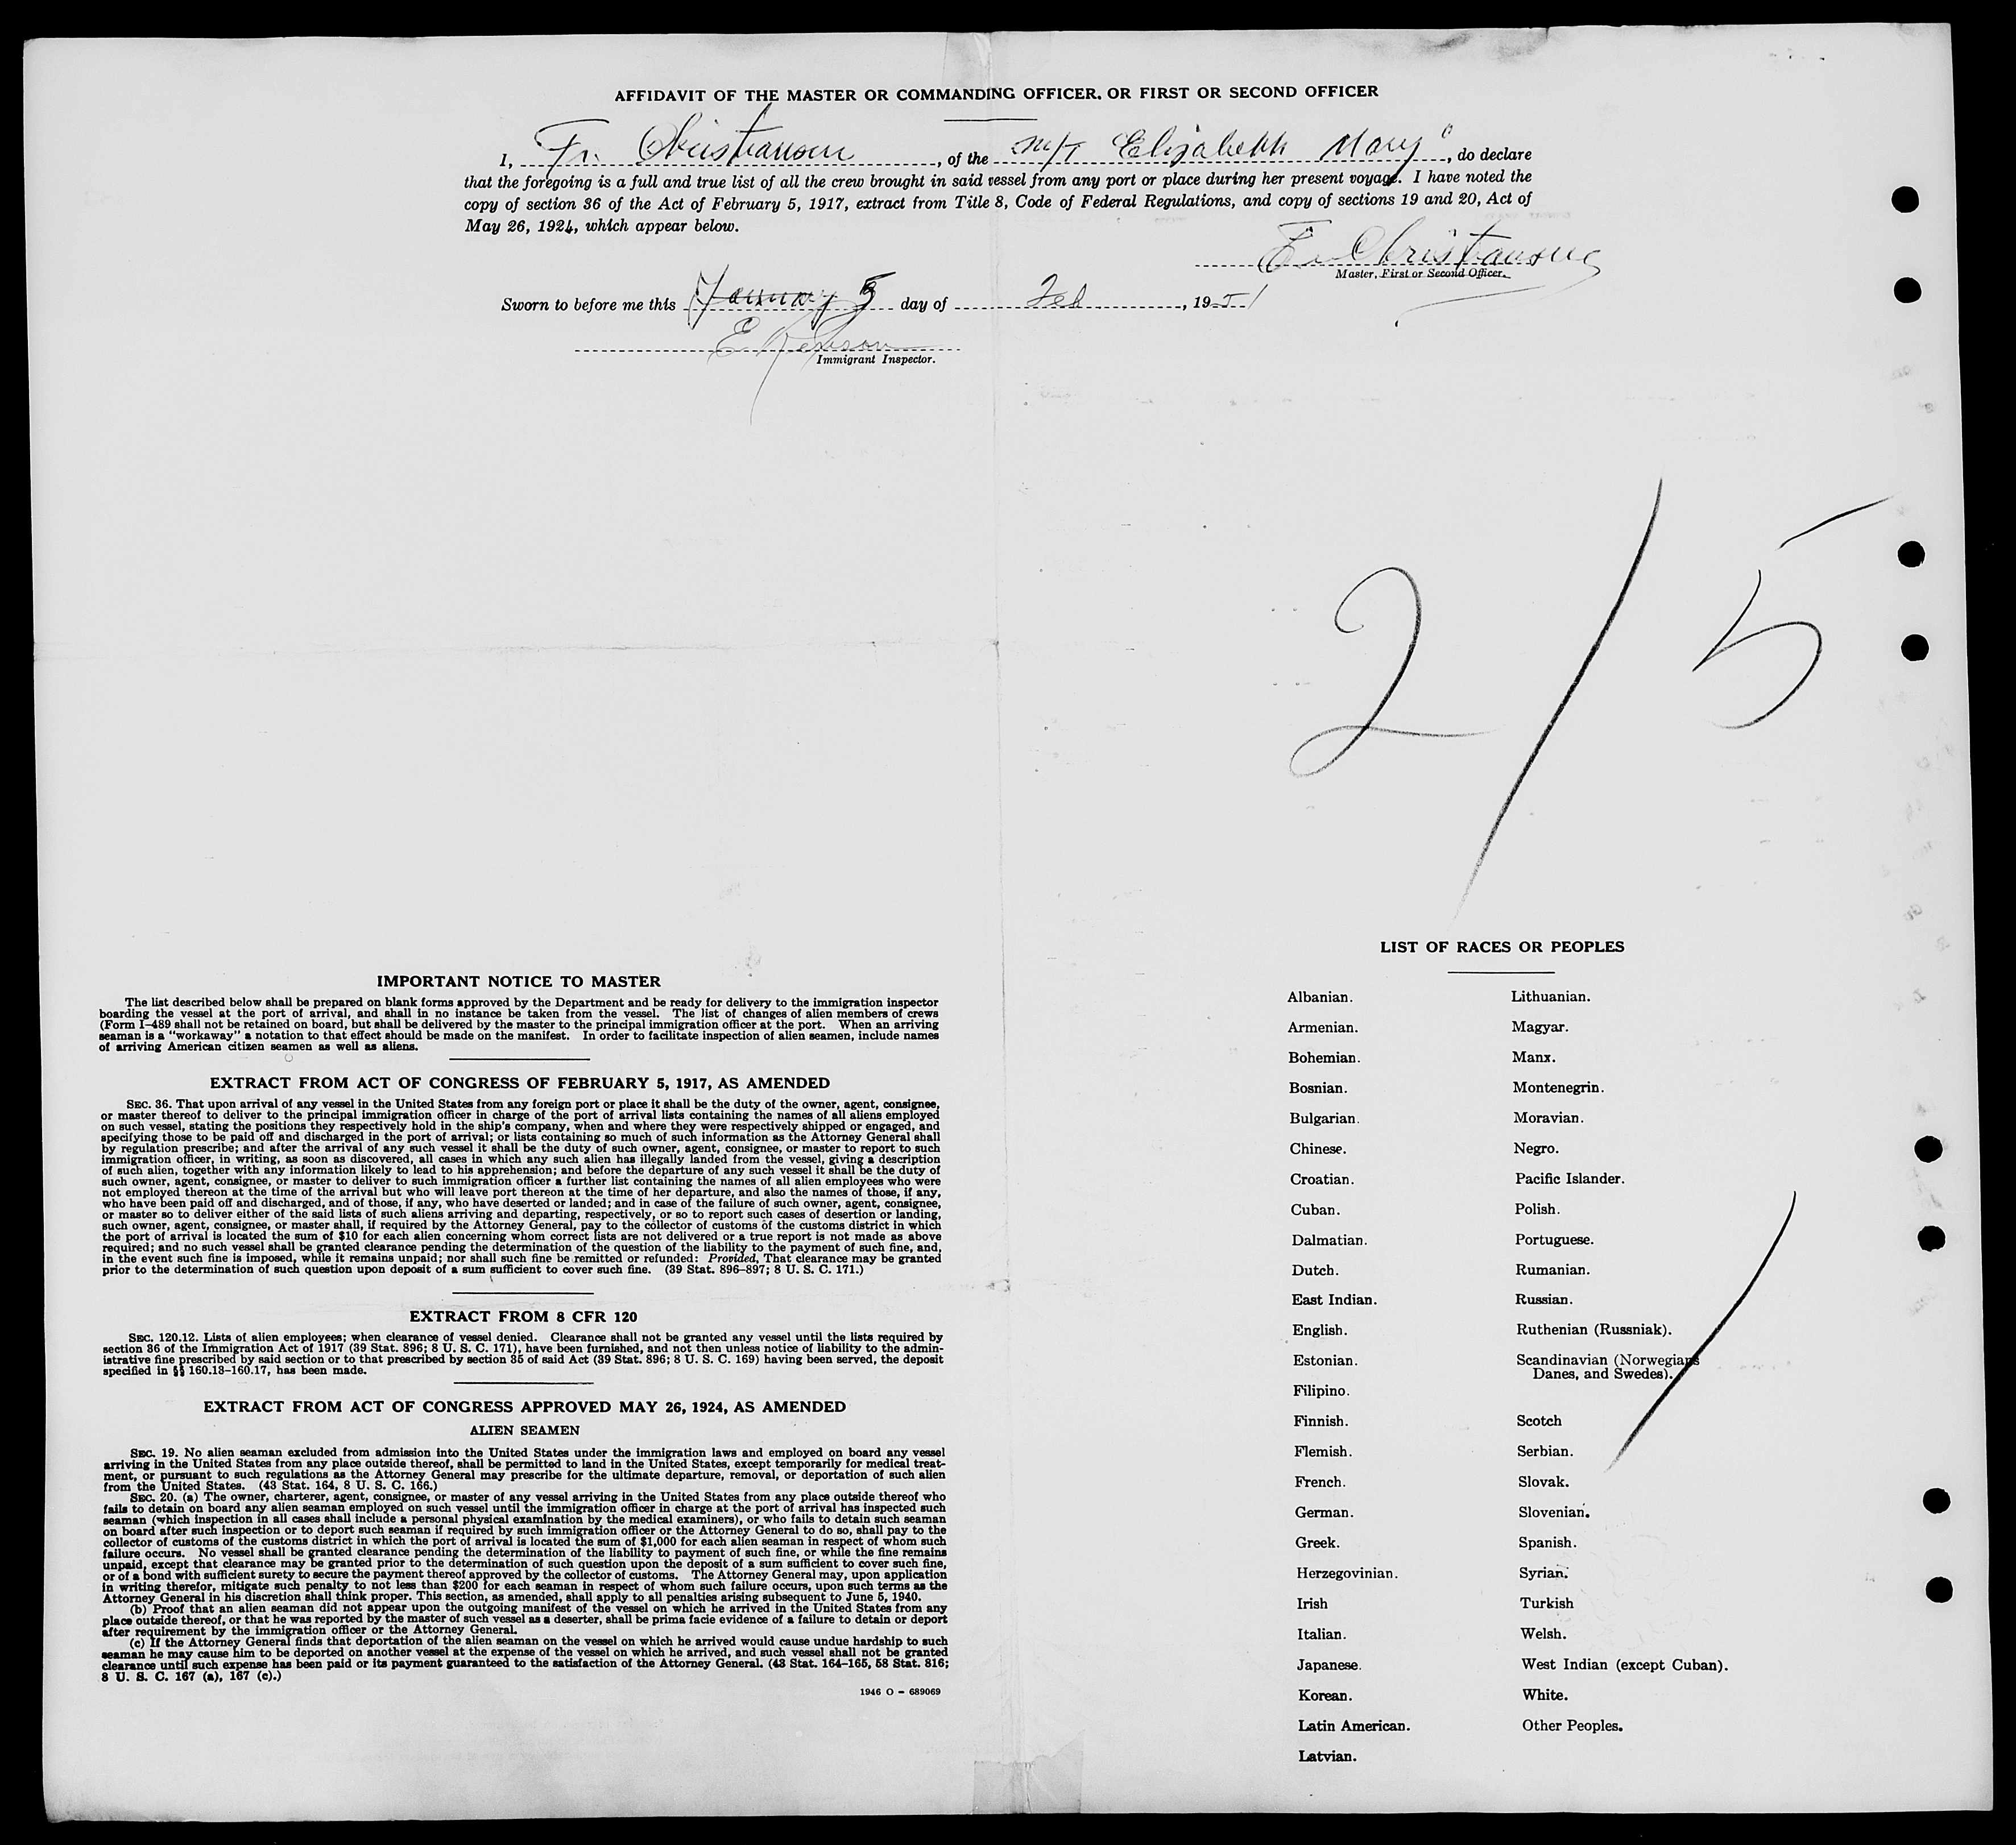 AFFIDAVIT OF THE MASTER OR COMMANDING OFFICER, OR FIRST OR SECOND OFFICER
I, Fr. Christiansen, of the M/T Elizabeth Mary", do declare
that the foregoing is a full and true list of all the crew brought in said vessel from any port or place during her present voyage. I have noted the
copy of section 36 of the Act of February 5, 1917, extract from Title 8, Code of Federal Regulations, and copy of sections 19 and 20, Act of
May 26, 1924, which appear below.
Fr. Christiansen
Master, First or Second Officer.
Sworn to before me this January 5 day of Feb, 1951
E
Immigrant Inspector.
2/5
IMPORTANT NOTICE TO MASTER
The list described below shall be prepared on blank forms approved by the Department and be ready for delivery to the immigration inspector
boarding the vessel at the port of arrival, and shall in no instance be taken from the vessel. The list of changes of alien members of crews
(Form I-489 shall not be retained on board, but shall be delivered by the master to the principal immigration officer at the port. When an arriving
seaman is a "workaway" a notation to that effect should be made on the manifest. In order to facilitate inspection of alien seamen, include names
of arriving American citizen seamen as well as aliens.
EXTRACT FROM ACT OF CONGRESS OF FEBRUARY 5, 1917, AS AMENDED
SEC. 36. That upon arrival of any vessel in the United States from any foreign port or place it shall be the duty of the owner, agent, consignee,
or master thereof to deliver to the principal immigration officer in charge of the port of arrival lists containing the names of all aliens employed
on such vessel, stating the positions they respectively hold in the ship's company, when and where they were respectively shipped or engaged, and
specifying those to be paid off and discharged in the port of arrival; or lists containing so much of such information as the Attorney General shall
by regulation prescribe; and after the arrival of any such vessel it shall be the duty of such owner, agent, consignee, or master to report to such
immigration officer, in writing, as soon as discovered, all cases in which any such alien has illegally landed from the vessel, giving a description
of such alien, together with any information likely to lead to his apprehension; and before the departure of any such vessel it shall be the duty of
such owner, agent, consignee, or master to deliver to such immigration officer a further list containing the names of all alien employees who were
not employed thereon at the time of the arrival but who will leave port thereon at the time of her departure, and also the names of those, if any,
who have been paid off and discharged, and of those, if any, who have deserted or landed; and in case of the failure of such owner, agent, consignee,
or master so to deliver either of the said lists of such aliens arriving and departing, respectively, or so to report such cases of desertion or landing,
such owner, agent, consignee, or master shall, if required by the Attorney General, pay to the collector of customs of the customs district in which
the port of arrival is located the sum of $10 for each alien concerning whom correct lists are not delivered or a true report is not made as above
required; and no such vessel shall be granted clearance pending the determination of the question of the liability to the payment of such fine, and,
in the event such fine is imposed, while it remains unpaid; nor shall such fine be remitted or refunded: Provided, That clearance may be granted
prior to the determination of such question upon deposit of a sum sufficient to cover such fine. (39 Stat. 896-897; 8 U. S. C. 171.)
EXTRACT FROM 8 CFR 120
SEC. 120.12. Lists of alien employees; when clearance of vessel denied. Clearance shall not be granted any vessel until the lists required by
section 36 of the Immigration Act of 1917 (39 Stat. 896; 8 U. S. C. 171), have been furnished, and not then unless notice of liability to the admin-
istrative fine prescribed by said section or to that prescribed by section 35 of said Act (39 Stat. 896; 8 U. S. C. 169) having been served, the deposit
specified in §§ 160.13-160.17, has been made.
EXTRACT FROM ACT OF CONGRESS APPROVED MAY 26, 1924, AS AMENDED
ALIEN SEAMEN
SEC. 19. No alien seaman excluded from admission into the United States under the immigration laws and employed on board any vessel
arriving in the United States from any place outside thereof, shall be permitted to land in the United States, except temporarily for medical treat-
ment, or pursuant to such regulations as the Attorney General may prescribe for the ultimate departure, removal, or deportation of such alien
from the United States. (43 Stat. 164, 8 U. S. C. 166.)
SEC. 20. (a) The owner, charterer, agent, consignee, or master of any vessel arriving in the United States from any place outside thereof who
fails to detain on board any alien seaman employed on such vessel until the immigration officer in charge at the port of arrival has inspected such
seaman (which inspection in all cases shall include a personal physical examination by the medical examiners), or who fails to detain such seaman
on board after such inspection or to deport such seaman if required by such immigration officer or the Attorney General to do so, shall pay to the
collector of customs of the customs district in which the port of arrival is located the sum of $1,000 for each alien seaman in respect of whom such
failure occurs. No vessel shall be granted clearance pending the determination of the liability to payment of such fine, or while the fine remains
unpaid, except that clearance may be granted prior to the determination of such question upon the deposit of a sum sufficient to cover such fine,
or of a bond with sufficient surety to secure the payment thereof approved by the collector of customs. The Attorney General may, upon application
in writing therefor, mitigate such penalty to not less than $200 for each seaman in respect of whom such failure occurs, upon such terms as the
Attorney General in his discretion shall think proper. This section, as amended, shall apply to all penalties arising subsequent to June 5, 1940.
(b) Proof that an alien seaman did not appear upon the outgoing manifest of the vessel on which he arrived in the United States from any
place outside thereof, or that he was reported by the master of such vessel as a deserter, shall be prima facie evidence of a failure to detain or deport
after requirement by the immigration officer or the Attorney General.
(c) If the Attorney General finds that deportation of the alien seaman on the vessel on which he arrived would cause undue hardship to such
seaman he may cause him to be deported on another vessel at the expense of the vessel on which he arrived, and such vessel shall not be granted
clearance until such expense has been paid or its payment guaranteed to the satisfaction of the Attorney General. (43 Stat. 164-165, 58 Stat. 816;
8 U. S. C. 167 (a), 167 (c).)
1946 O - 689069
LIST OF RACES OR PEOPLES
Albanian. Lithuanian.
Armenian. Magyar.
Bohemian. Manx.
Bosnian. Montenegrin.
Bulgarian. Moravian.
Chinese. Negro.
Croatian. Pacific Islander.
Cuban. Polish.
Dalmatian. Portuguese.
Dutch. Rumanian.
East Indian. Russian.
English. Ruthenian (Russniak).
Estonian. Scandinavian (Norwegians
Danes, and Swedes).
Filipino.
Finnish. Scotch
Flemish. Serbian.
French. Slovak.
German. Slovenian.
Greek. Spanish.
Herzegovinian. Syrian.
Irish Turkish
Italian. Welsh.
Japanese. West Indian (except Cuban).
Korean. White.
Latin American. Other Peoples.
Latvian.